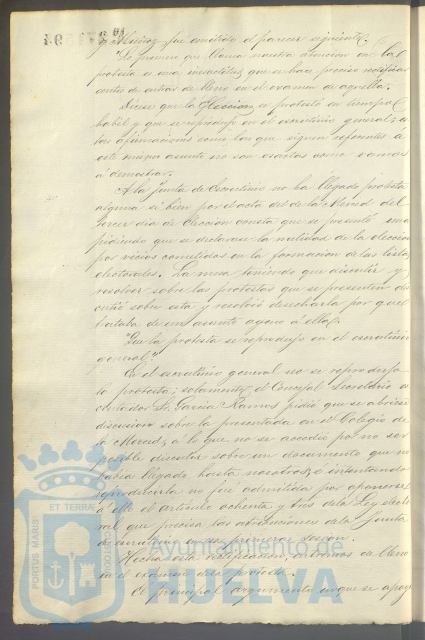 y Muñoz fue emitido el parecer siguiente.
"Lo primero que llama nuestra atencion en la
protesta es una inexactitud que se hace preciso rectificar
antes de entrar de lleno en el examen de aquella.
Dícese que la Eleccion se protestó en tiempo
habil y que se reprodujo en el escrutinio general; es
tas afirmaciones como las que siguen referentes á
este mismo asunto no son exactas como vamos
á demostrar.
A la Junta de Escrutinio no ha llegado protesta
alguna si bien por el acta del de la Merced del
tercer dia de Eleccion consta que se presentó una
pidiendo que se declarase la nulidad de la eleccion
por vicios cometidos en la formacion de las listas
electorales. La mesa teniendo que discutir y
resolver sobre las protestas que se presenten dis
cutió sobre esta y resolvió desecharla por que
trataba de un asunto ageno á ella.
"Que la protesta se reprodujo en el escrutinio
general."
En el escrutinio general no se reprodujo
la protesta; solamente el Concejal Secretario es
crutador Sr. Garcia Ramos pidió que se abriese
discusion sobre la presentada en el Colegio de
la Merced, a lo que no se accedió por no ser
posible discutir sobre un documento que no
habia llegado hasta nosotros; é intentando
reproducirla no fué admitida por oponerse
á ello el articulo ochenta y tres de la Ley electo
ral que precisa las atribuciones de la Junta
de escrutinio en su primera sesion.
Hecha esta rectificacion, entramos de lleno
en el examen de la protesta.
El principal argumento en que se apoy
PORTUS MARIS ET TERRAE CUSTODIA
Ayuntamiento de
HUELVA